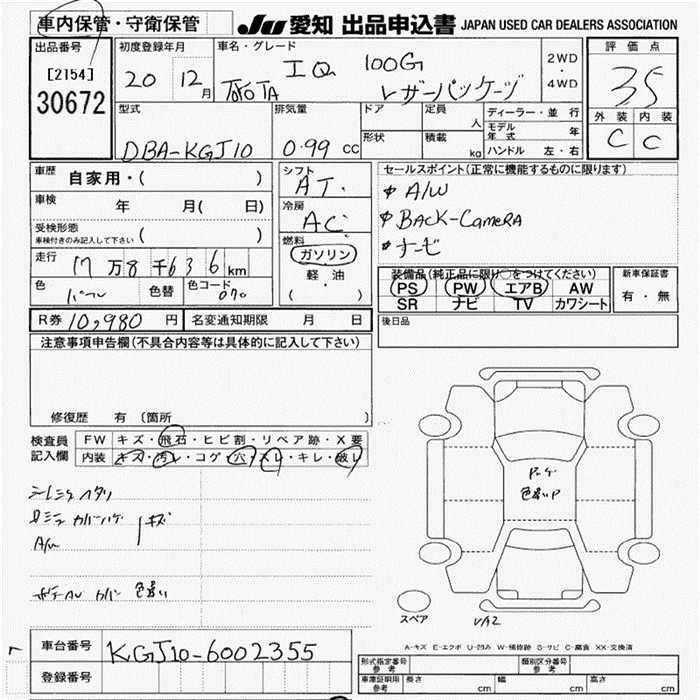 車内保管・守衛保管
JU 愛知 出品申込書 JAPAN USED CAR DEALERS ASSOCIATION
出品番号
[2154]
30672
初度登録年月
20 12月
車名・グレード
TOYOTA IQ 100G
レザーパッケージ
2WD
・
4WD
評価点
3.5
外装 内装
C C
型式
DBA-KGJ10
排気量
0.99 cc
ドア
形状
定員 人
積載 kg
ディーラー・並行
モデル年式 年
ハンドル 左・右
車歴 自家用・( )
車検 年 月( 日)
受検形態
車検付きのみ記入して下さい ( )
走行 17万8千636km
色 パール 色替 色コード 070
シフト
AT.
冷房
AC
燃料
ガソリン
軽・油
( )
セールスポイント(正常に機能するものに限ります)
A/W
BACK-CAMERA
ナービ
装備品(純正品に限り○をつけてください)
PS PW エアB AW
SR ナビ TV カワシート
新車保証書
有・無
R券 10,980 円 名変通知期限 月 日
後日品
注意事項申告欄(不具合内容等は具体的に記入して下さい)
修復歴 有 (箇所 )
検査員
記入欄
FW キズ・飛石・ヒビ割・リペア跡・X要
内装 キズ・汚レ・コゲ・穴・スレ・キレ・破レ
キズ
A/W
カバー 色違い
色違いP
スペア
A-キズ E-エクボ U-凹み W-補修跡 S-サビ C-腐食 XX-交換済
車台番号 KGJ10-6002355
登録番号
形式指定番号
参考
類別区分番号
参考
車庫証明用
参考
長さ cm 幅 cm 高さ cm